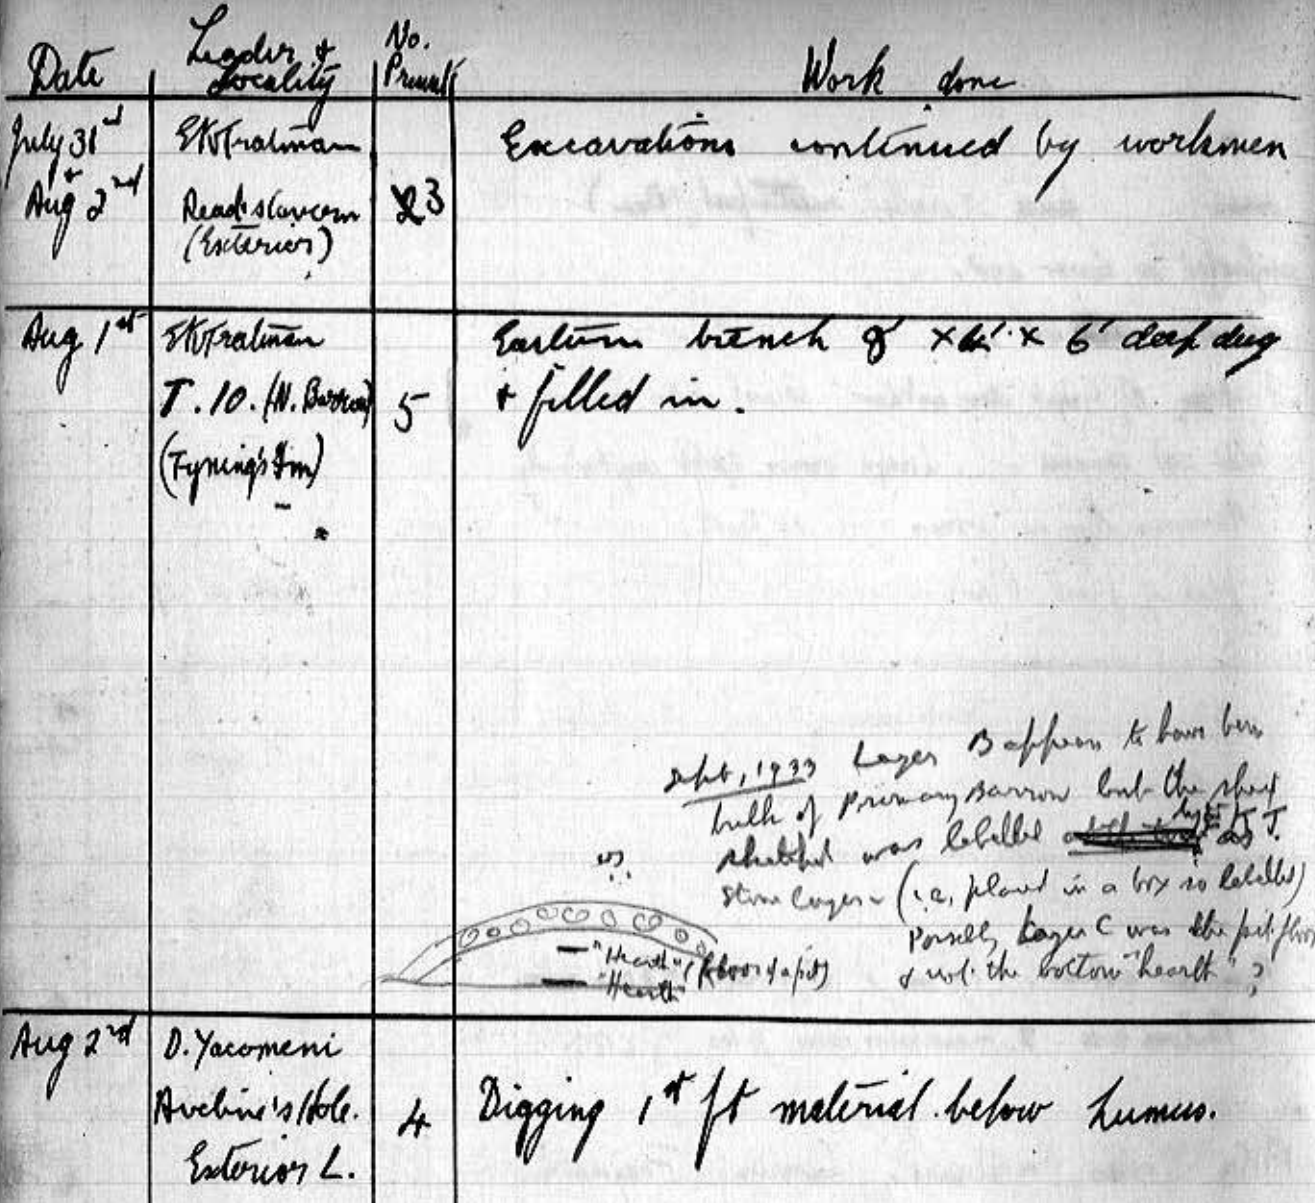 Date
Leader &
Locality
No.
Present
Work done
July 31st
&
Aug 2nd
EK Tratman
Read's Cavern
(Exterior)
3
Excavations continued by workmen
Aug 1st
EK Tratman
T.10. (N. Barrow)
(Tyning's Fm)
5
Eastern trench 8' × 4' × 6' deep dug
& filled in.
Sept, 1933 Layer B appears to have been
bulk of Primary Barrow but the
sketched was labelled as
stone layer (i.e. placed in a box so labelled)
Possibly Layer C was the pit floor
& not the bottom "hearth"?
"Hearth" (floor of a pit)
"Hearth"
Aug 2nd
D. Yacomeni
Aveline's Hole.
Exterior L.
4
Digging 1st ft material below humus.